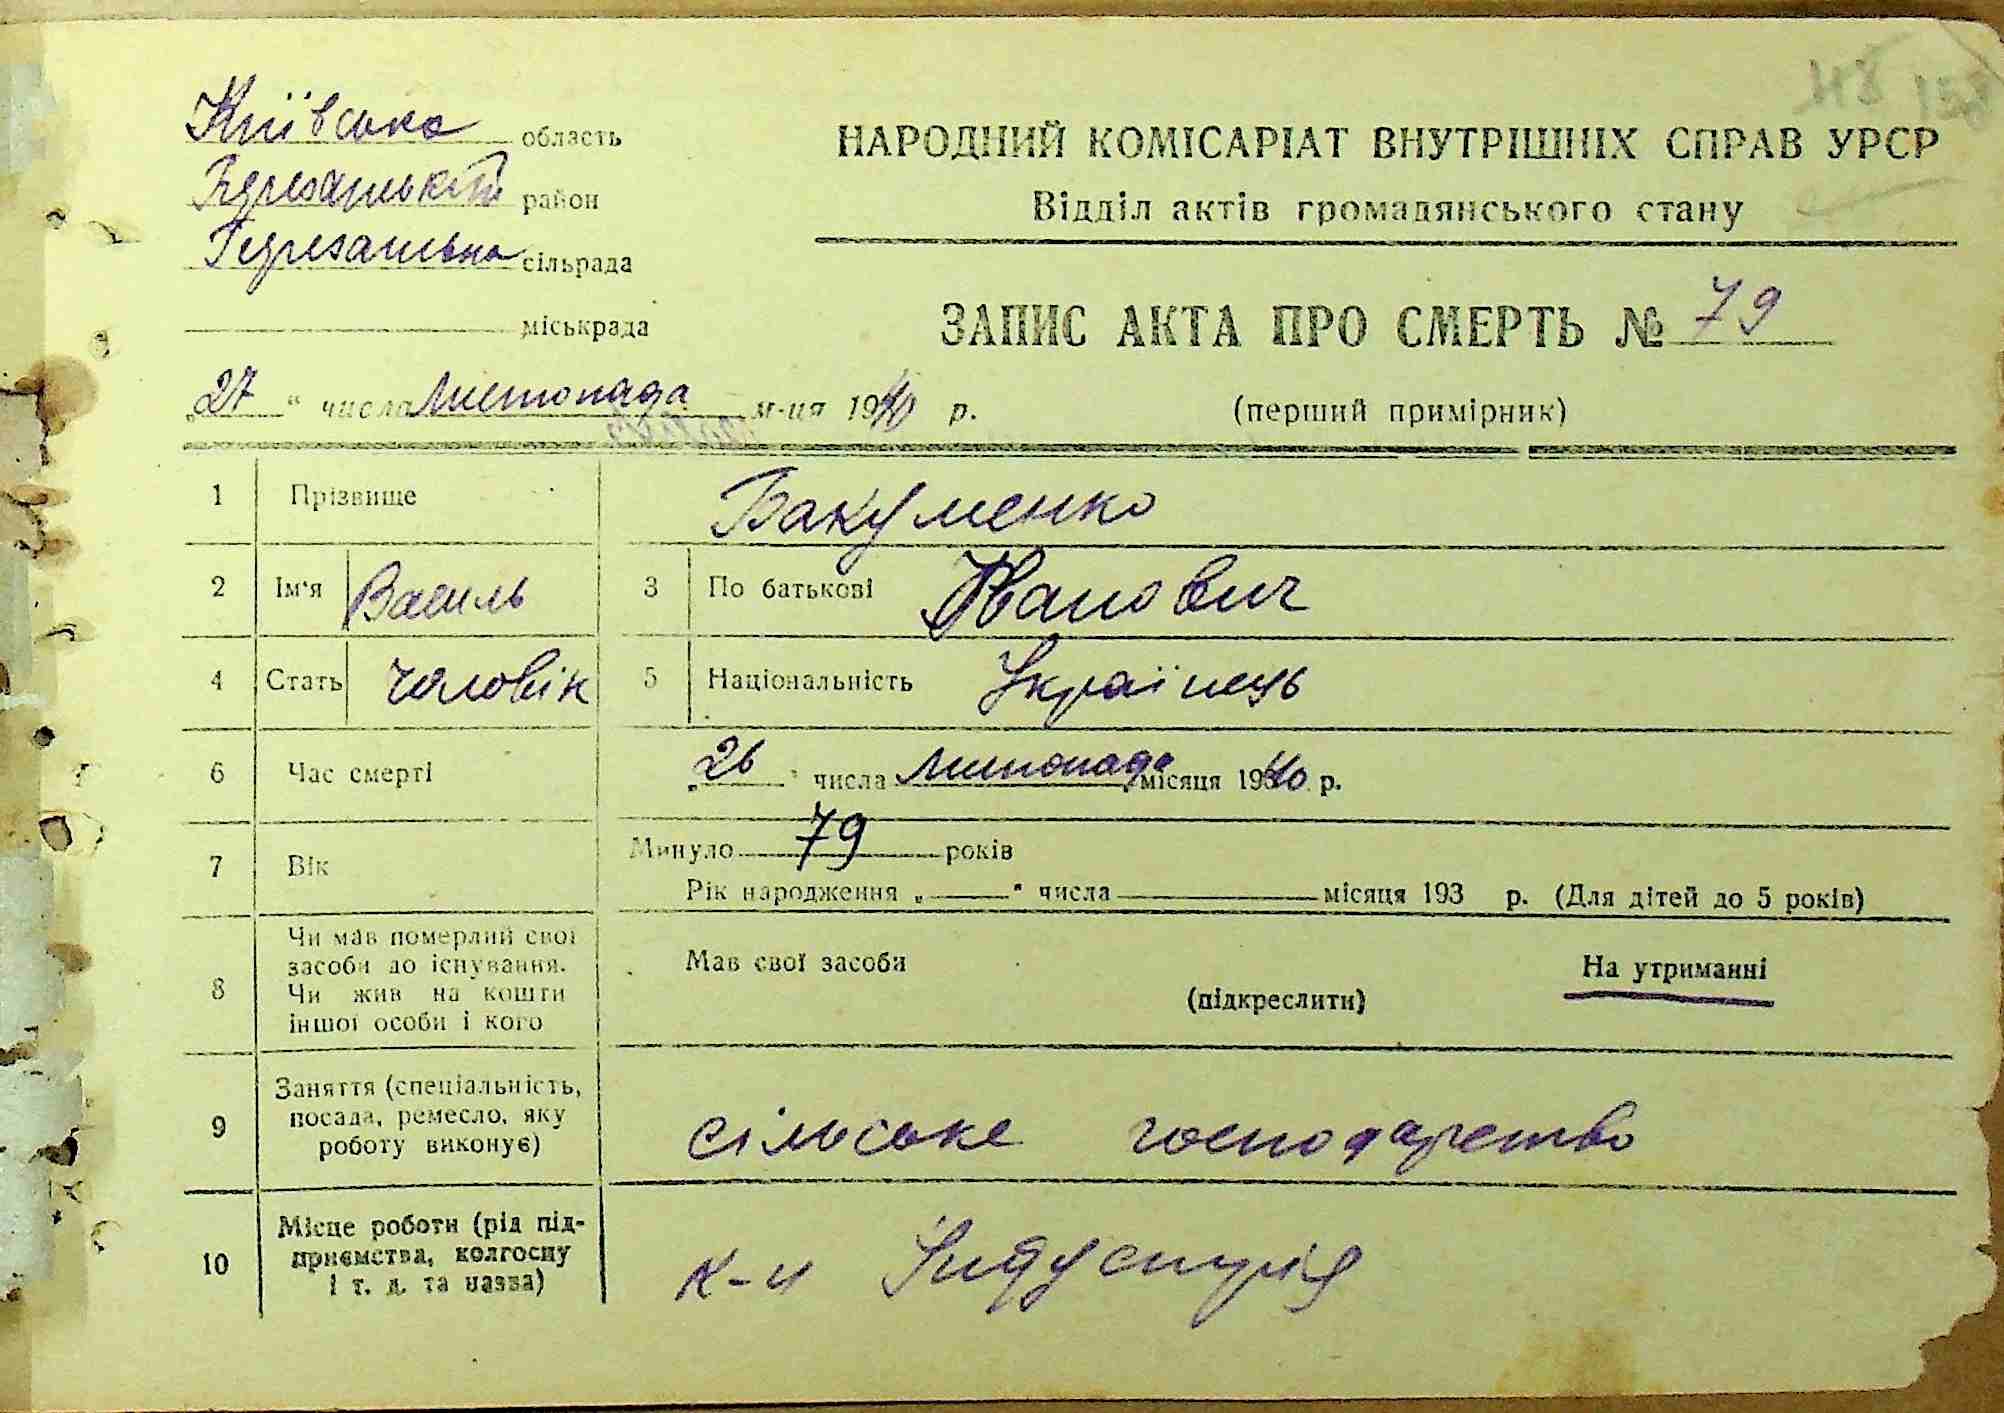 Київська область
Березанський район
Березанська сільрада
міськрада
НАРОДНИЙ КОМІСАРІАТ ВНУТРІШНІХ СПРАВ УРСР
Відділ актів громадянського стану
ЗАПИС АКТА ПРО СМЕРТЬ № 79
„27“ числа Листопада м-ця 1940 р.
(перший примірник)
1 Прізвище Бакуменко
2 Ім'я Василь 3 По батькові Іванович
4 Стать чоловік 5 Національність Українець
6 Час смерті „26“ числа Листопада місяця 1940 р.
7 Вік Минуло 79 років
Рік народження „ “ числа місяця 193 р. (Для дітей до 5 років)
8 Чи мав померлий свої засоби до існування. Чи жив на кошти іншої особи і кого
Мав свої засоби (підкреслити) На утриманні
9 Заняття (спеціальність, посада, ремесло, яку роботу виконує) сільське господарство
10 Місце роботи (рід підприємства, колгоспу і т. д. та назва) Індустрія